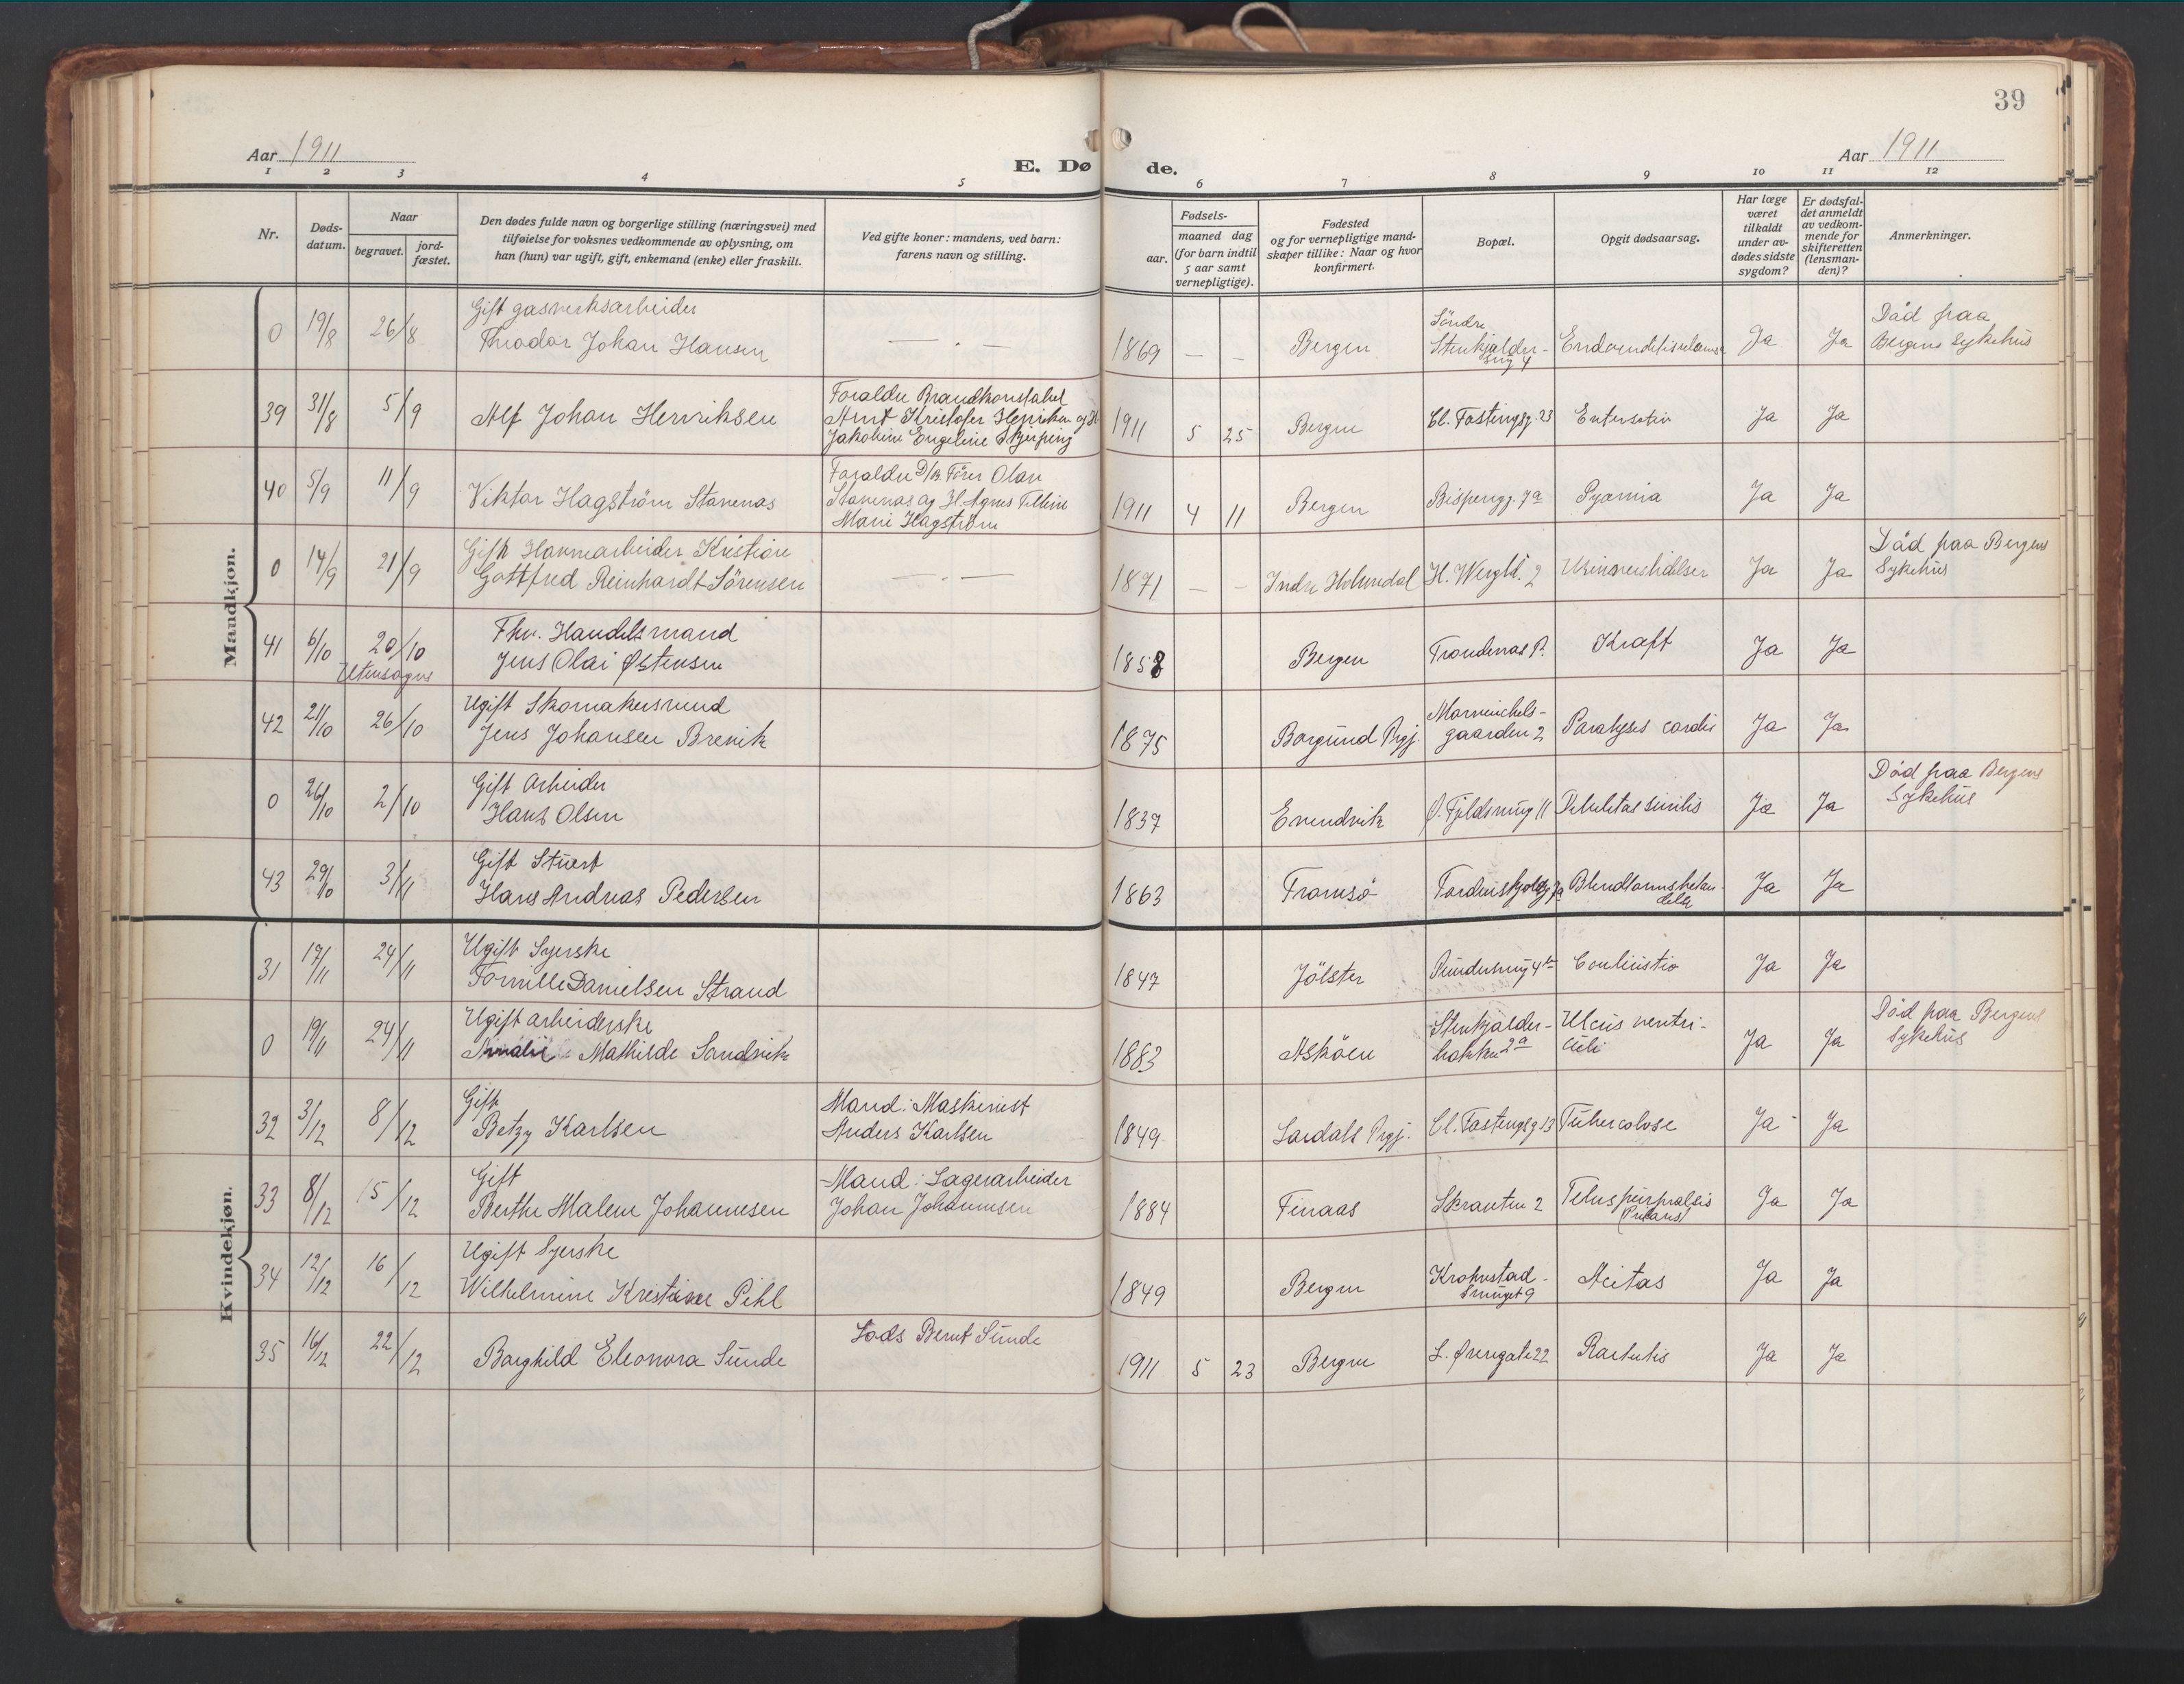 39
Aar 1911
E. Dø
de.
Aar 1911
1 2 3 4 5 6 7 8 9 10 11 12
Nr.
Døds-
datum.
Naar
begravet.
jord-
fæstet.
Den dødes fulde navn og borgerlige stilling (næringsvei) med
tilføielse for voksnes vedkommende av oplysning, om
han (hun) var ugift, gift, enkemand (enke) eller fraskilt.
Ved gifte koner: mandens, ved barn:
farens navn og stilling.
Fødsels-
aar.
maaned dag
(for barn indtil
5 aar samt
vernepligtige).
Fødested
og for vernepligtige mand-
skaper tillike: Naar og hvor
konfirmert.
Bopæl.
Opgit dødsaarsag.
Har læge
været
tilkaldt
under av-
dødes sidste
sygdom?
Er dødsfal-
det anmeldt
av vedkom-
mende for
skifteretten
(lensman-
den)?
Anmerkninger.
Mandkjøn.
0 19/8 26/8
Gift gasverksarbeider
Theodor Johan Hansen
— . —
1869 — —
Bergen
Söndre
Stenkjelder-
smg 4
Ja Ja
Död paa
Bergens Sykehus
39 31/8 5/9
Alf Johan Henriksen
Foraldre Brandkonstabel
Arnt Kristofer Henriksen og H.
Jakobine Engeline Skjerping
1911 5 25
Bergen
Cl. Fastingsg. 23
Ja Ja
40 5/9 11/9
Viktor Hagström Stavenas
Foraldre D/B Förer Olav
Stavenas og H. Agnes
Marie Hagström
1911 4 11
Bergen
Bispengg. 7a
Pyæmia
Ja Ja
0 14/9 21/9
Gift Havnearbeider Kristian
Gottfred Reinhardt Sörensen
— . —
1871 — —
Indre Holmedal
H. Wergld. 2
Ja Ja
Död paa Bergens
Sykehus
41 6/10 20/10
Utensogns
Fhv. Handelsmand
Jens Olai Østensen
1858
Bergen
Trondenas P.
Kræft
Ja Ja
42 21/10 26/10
Ugift Skomakersvend
Jens Johansen Brevik
1875
Borgund Prgj.
gaarden 2
Paralysis cordis
Ja Ja
0 26/10 2/10
Gift Arbeider
Hans Olsen
1837
Evendvik
Ø. Fjeldsmug 11
Ja Ja
Död paa Bergens
Sykehus
43 29/10 3/11
Gift Stuert
Hans Andreas Pedersen
1863
Tromsö
Ja Ja
Kvindekjøn.
31 17/11 24/11
Ugift Syerske
Danielsen Strand
1847
Jölster
Ja Ja
0 19/11 24/11
Ugift arbeiderske
Amalie Mathilde Sandvik
1883
Asköen
Stenkjelder-
bakken 2a
Ulcus ventri-
culi
Ja Ja
Död paa Bergens
Sykehus
32 3/12 8/12
Gift
Betzy Karlsen
Mand: Maskinist
Anders Karlsen
1849
Lærdals Prgj.
Cl. Fastingsg 13
Tubercolose
Ja Ja
33 8/12 15/12
Gift
Berthe Malene Johannesen
Mand: Lagerarbeider
Johan Johannesen
1884
Finaas
Skranten 2
Ja Ja
34 12/12 16/12
Ugift Syerske
Wilhelmine Kristiane Pihl
1849
Bergen
Krohnstad-
smuget 9
Ja Ja
35 16/12 22/12
Borghild Eleonora Sunde
Lods Bernt Sunde
1911 5 23
Bergen
L. Øvregate 22
Ja Ja